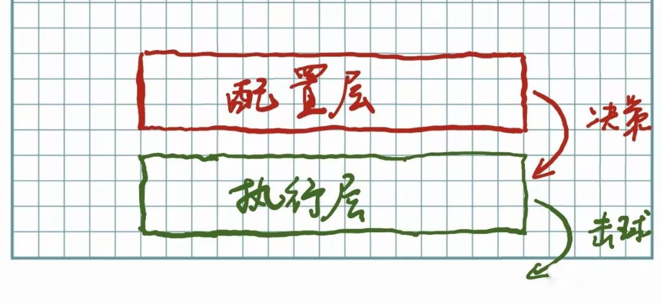 配置层
决策
执行层
击球